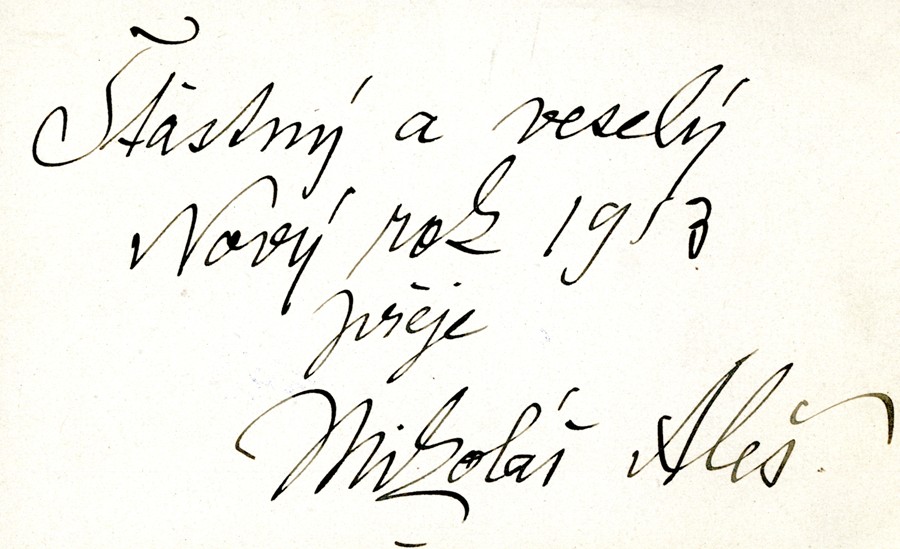 Šťastný a veselý
Nový rok 1913
přeje
Mikoláš Aleš.